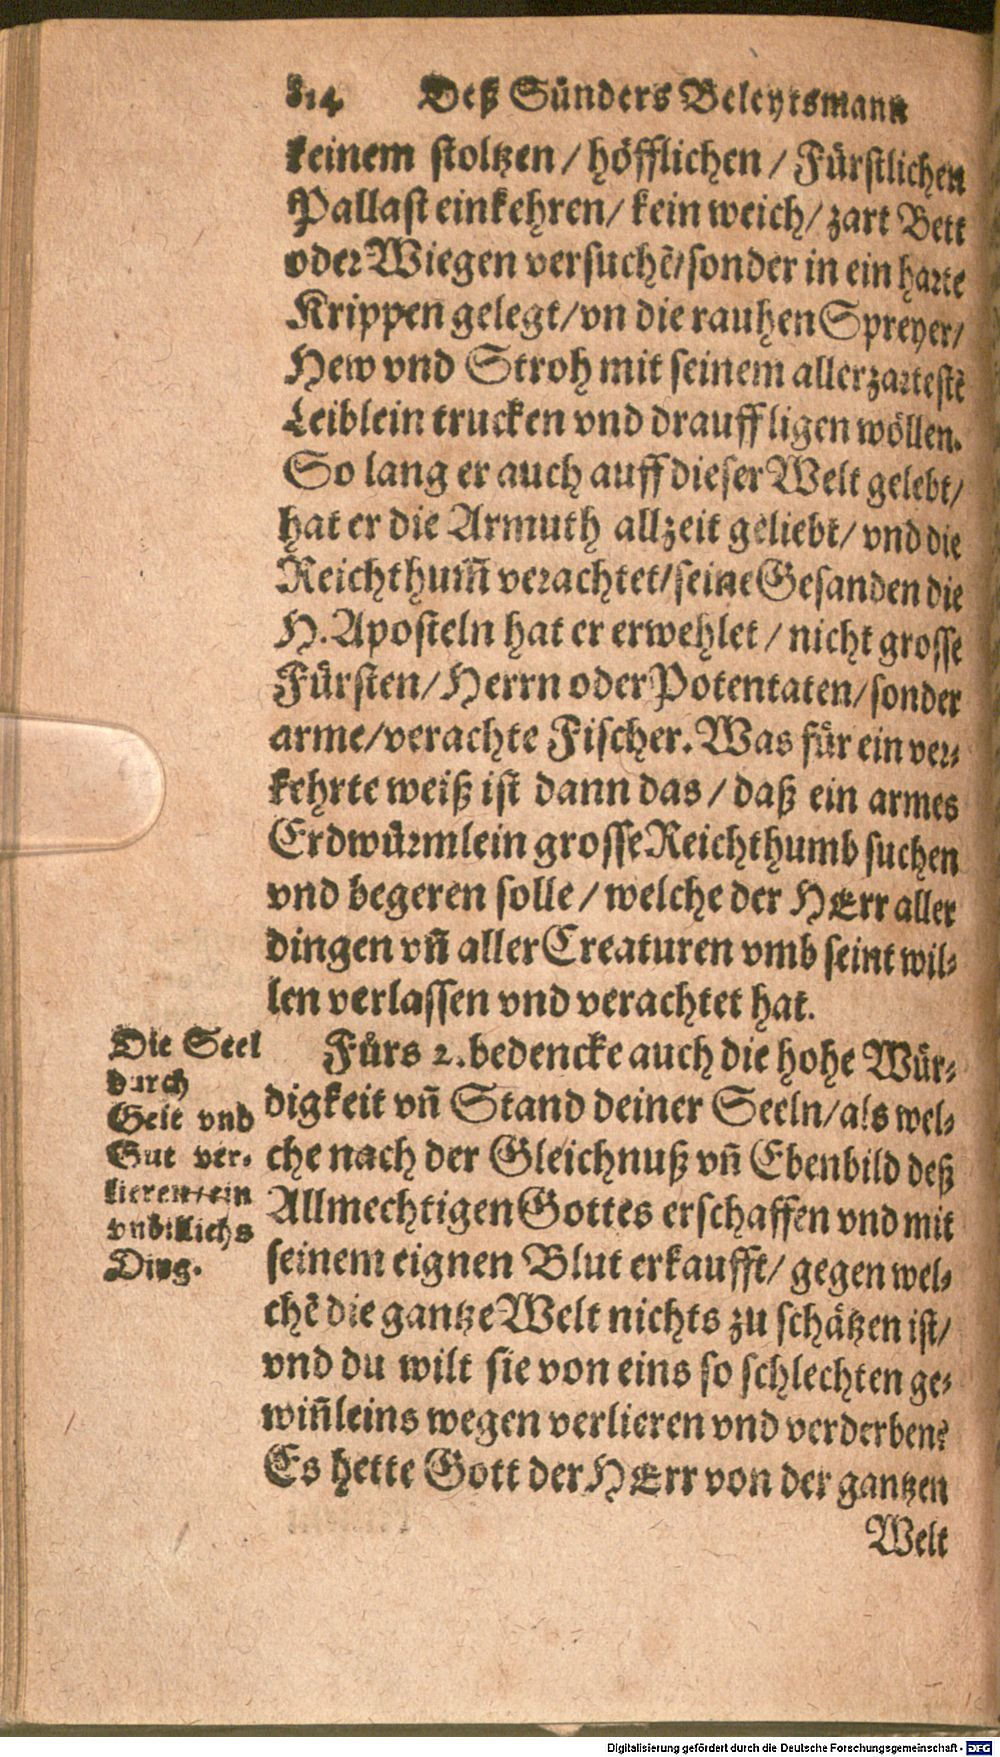 814 Deß Sünders Beleytsmann
keinem stoltzen / höfflichen / Fürstlichen
Pallast einkehren / kein weich / zart Bett
oder Wiegen versuchẽ / sonder in ein harte
Krippen gelegt / vn die rauhen Spreyer /
Hew vnd Stroh mit seinem allerzartestẽ
Leiblein trucken vnd drauff ligen wöllen.
So lang er auch auff dieser Welt gelebt /
hat er die Armuth allzeit geliebt / vnd die
Reichthum̃ verachtet / seine Gesanden die
H. Aposteln hat er erwehlet / nicht grosse
Fürsten / Herrn oder Potentaten / sonder
arme / verachte Fischer. Was für ein ver-
kehrte weiß ist dann das / daß ein armes
Erdwürmlein grosse Reichthumb suchen
vnd begeren solle / welche der HErr aller
dingen vñ aller Creaturen vmb seint wil-
len verlassen vnd verachtet hat.
Fürs 2. bedencke auch die hohe Wür-
digkeit vñ Stand deiner Seeln / als wel-
che nach der Gleichnuß vñ Ebenbild deß
Allmechtigen Gottes erschaffen vnd mit
seinem eignen Blut erkaufft / gegen wel-
chẽ die gantze Welt nichts zu schätzen ist /
vnd du wilt sie von eins so schlechten ge-
wiñleins wegen verlieren vnd verderben?
Es hette Gott der HErr von der gantzen
Welt
Die Seel
durch
Gelt vnd
Gut ver-
lieren / ein
vnbillichs
Ding.
Digitalisierung gefördert durch die Deutsche Forschungsgemeinschaft - DFG